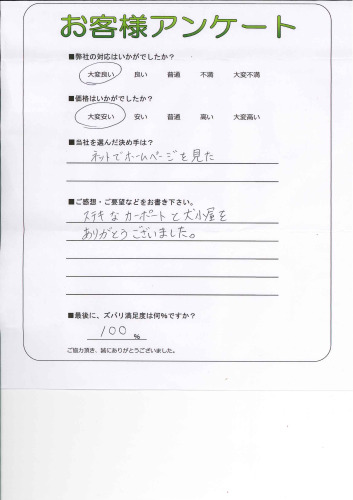 お客様アンケート
■弊社の対応はいかがでしたか？
大変良い 良い 普通 不満 大変不満
■価格はいかがでしたか？
大変安い 安い 普通 高い 大変高い
■当社を選んだ決め手は？
ネットでホームページを見た
■ご感想・ご要望などをお書き下さい。
ステキなカーポートと犬小屋を
ありがとうございました。
■最後に、ズバリ満足度は何%ですか？
100 %
ご協力頂き、誠にありがとうございました。